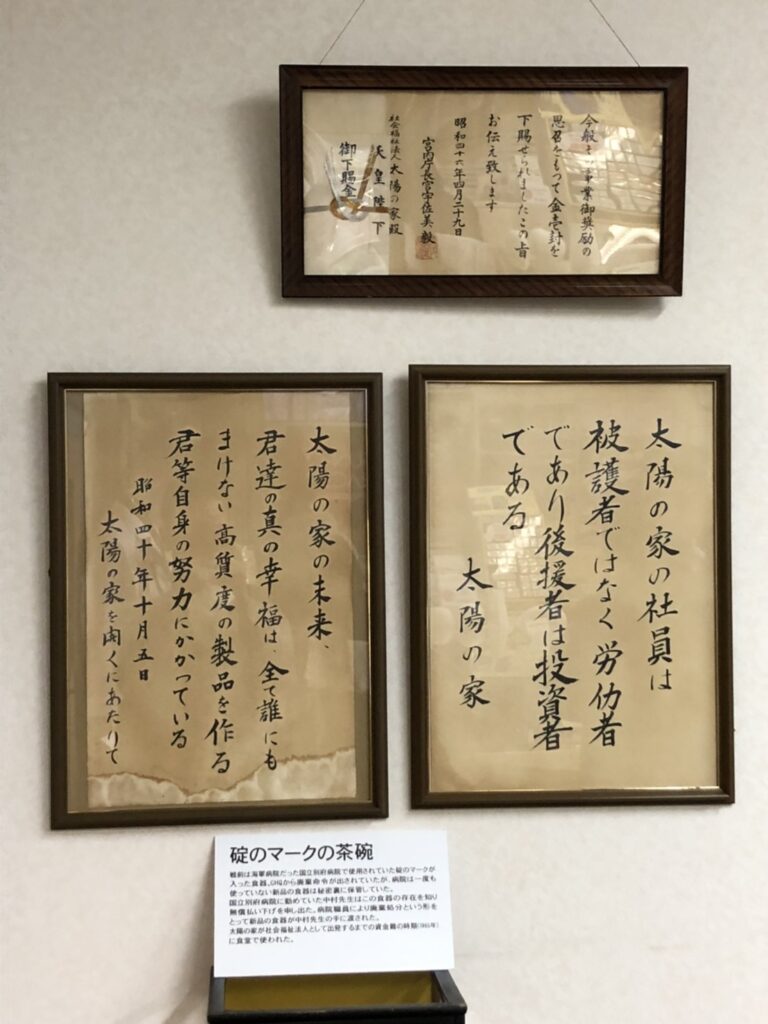 今般その事業御奨励の
思召をもつて金壱封を
下賜せられましたこの旨
お伝え致します
昭和四十六年四月二十九日
宮内庁長官宇佐美毅
社会福祉法人太陽の家殿
天皇陛下
御下賜金
太陽の家の社員は
被護者ではなく労仂者
であり後援者は投資者
である
太陽の家
太陽の家の未来、
君達の真の幸福は、全て誰にも
まけない高質度の製品を作る
君等自身の努力にかかっている
昭和四十年十月五日
太陽の家を開くにあたりて
碇のマークの茶碗
戦前は海軍病院だった国立別府病院で使用されていた碇のマークが
入った食器。GHQから廃棄命令が出されていたが、病院は一度も
使っていない新品の食器は秘密裏に保管していた。
国立別府病院に勤めていた中村先生はこの食器の存在を知り
無償払い下げを申し出た。病院職員により廃棄処分という形を
とって新品の食器が中村先生の手に渡された。
太陽の家が社会福祉法人として出発するまでの資金難の時期(1965年)
に食堂で使われた。